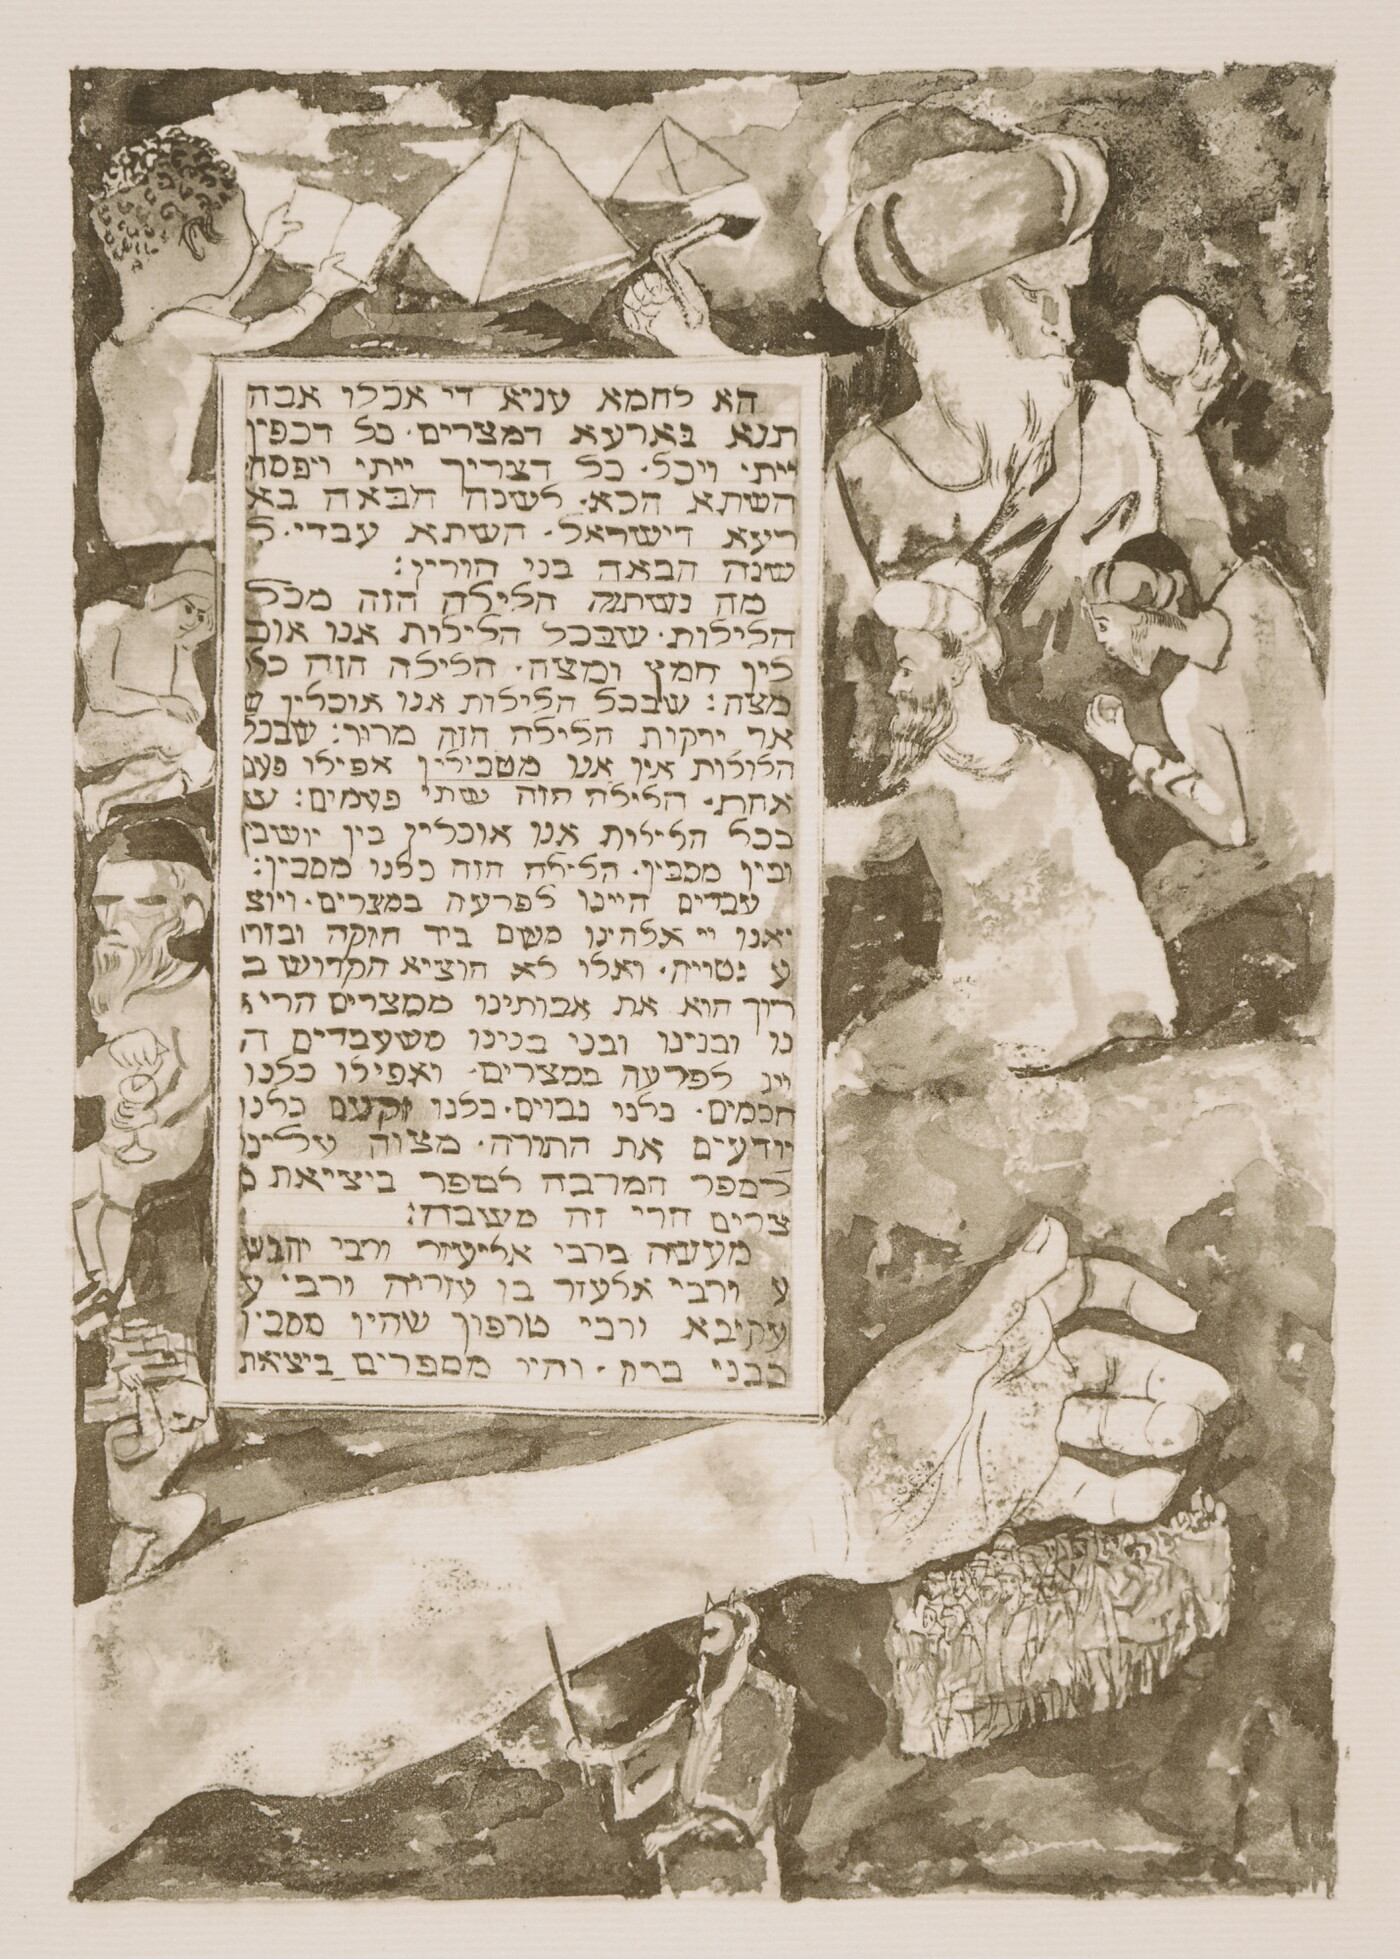 הא לחמא עניא די אכלו אבה
תנא בארעא דמצרים· כל דכפין
ייתי ויכל· כל דצריך ייתי ויפסח
השתא הכא· לשנה הבאה בא
רעא דישראל· השתא עבדי· ל
שנה הבאה בני חורין:
מה נשתנה הלילה הזה מכל
הלילות· שבכל הלילות אנו אוכ
לין חמץ ומצה· הלילה הזה כל
מצה: שבכל הלילות אנו אוכלין ש
אר ירקות הלילה הזה מרור: שבכל
הלולות אין אנו מטבילין אפילו פעם
אחת· הלילה הזה שתי פעמים: ש
בכל הלילות אנו אוכלין בין יושבין
ובין מסבין· הלילה הזה כלנו מסבין:
עבדים היינו לפרעה במצרים· ויוצ
יאנו יי אלהינו משם ביד חזקה ובזרו
ע נטויה· ואלו לא הוציא הקדוש ב
רוך הוא את אבותינו ממצרים הרי א
נו ובנינו ובני בנינו משעבדים ה
יינו לפרעה במצרים· ואפילו כלנו
חכמים· כלנו נבוים· כלנו זקנים כלנו
יודעים את התורה· מצוה עלינו
לספר המרבה לספר ביציאת מ
צרים הרי זה משבח:
מעשה ברבי אליעזר ורבי יהוש
ע ורבי אלעזר בן עזריה ורבי ע
עקיבא ורבי טרפון שהיו מסבין
בבני ברק· והיו מספרים ביציאת